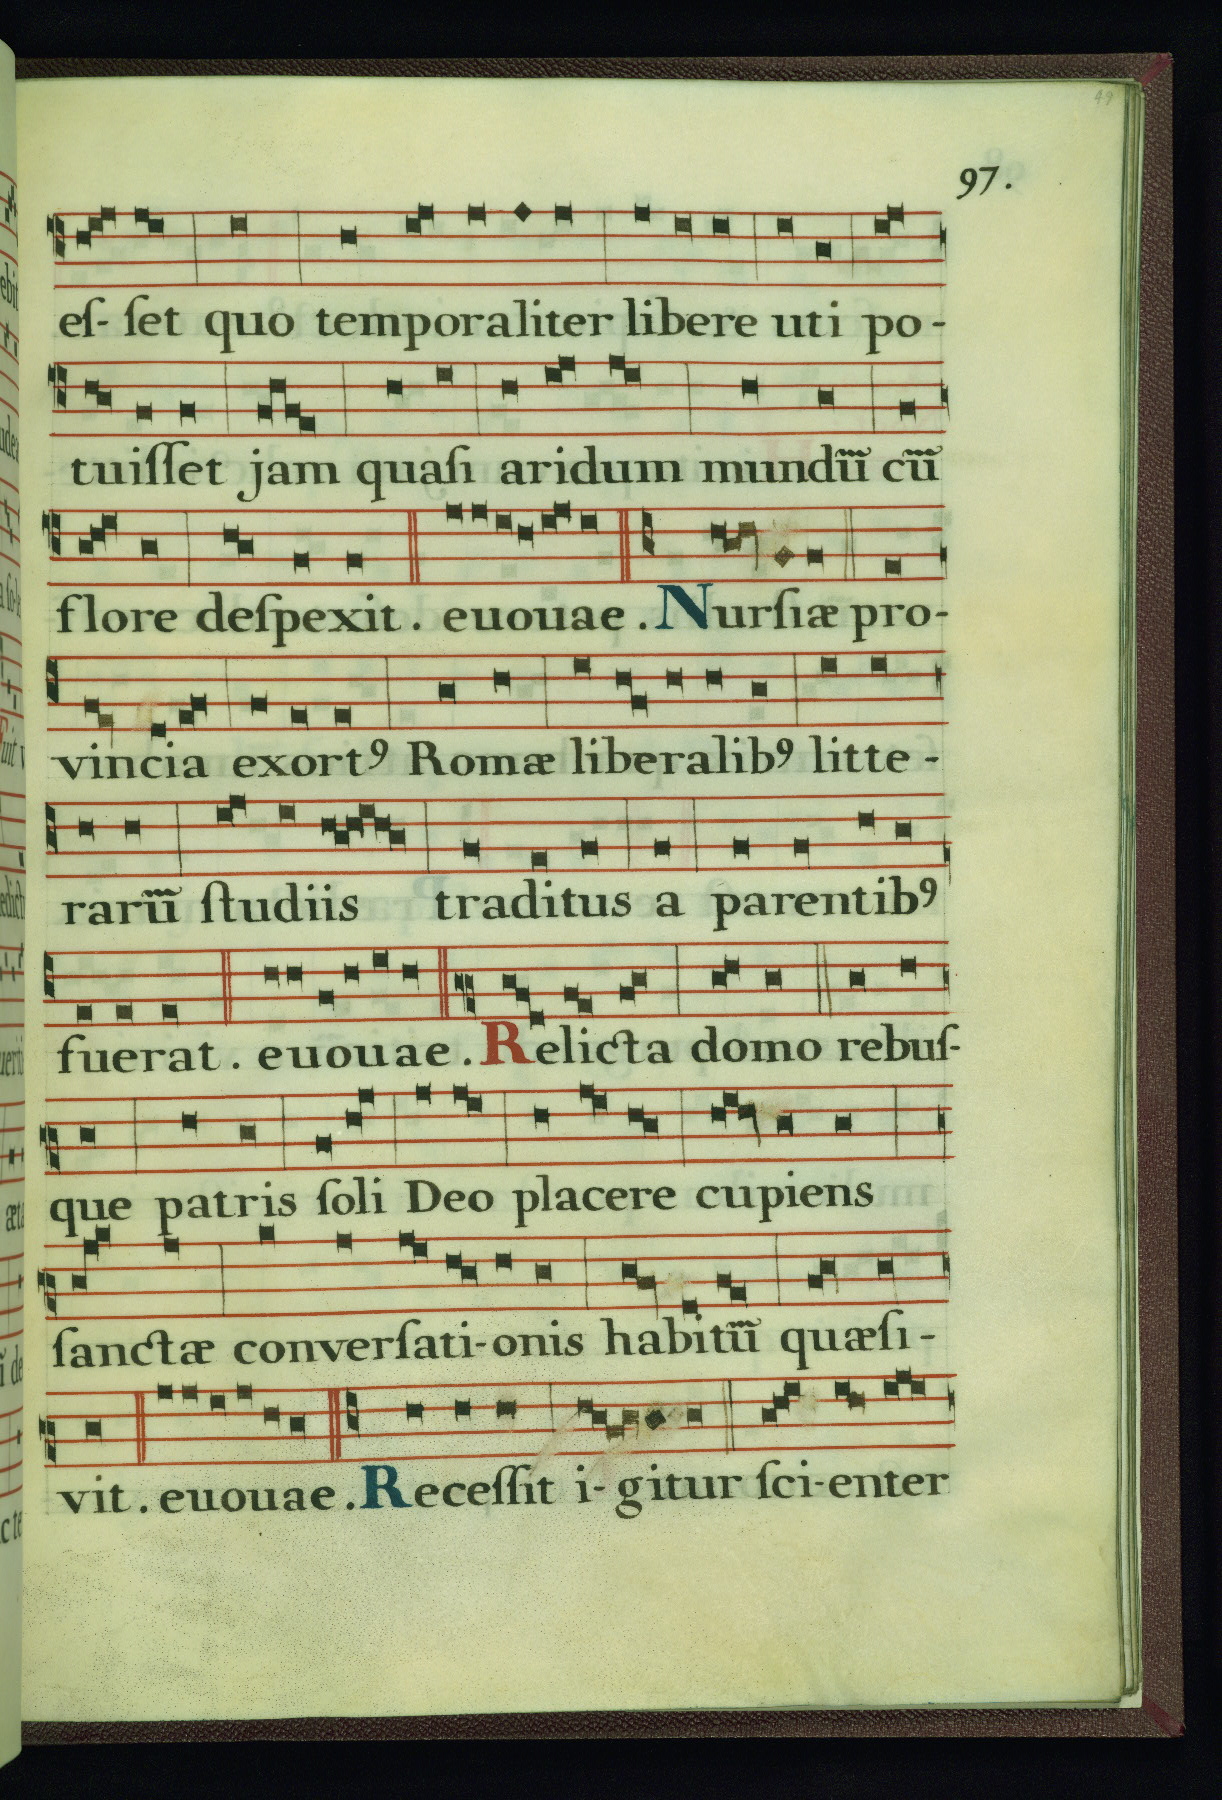 49
97.
eſ- ſet quo temporaliter libere uti po-
tuiſſet jam quaſi aridum mundũ cũ
flore deſpexit. euouae. Nurſiæ pro-
vincia exortꝰ Romæ liberalibꝰ litte-
rarũ ſtudiis traditus a parentibꝰ
fuerat. euouae. Relicta domo rebuſ-
que patris ſoli Deo placere cupiens
ſanctæ converſati-onis habitũ quæſi-
vit. euouae. Receſſit i-gitur ſci-enter